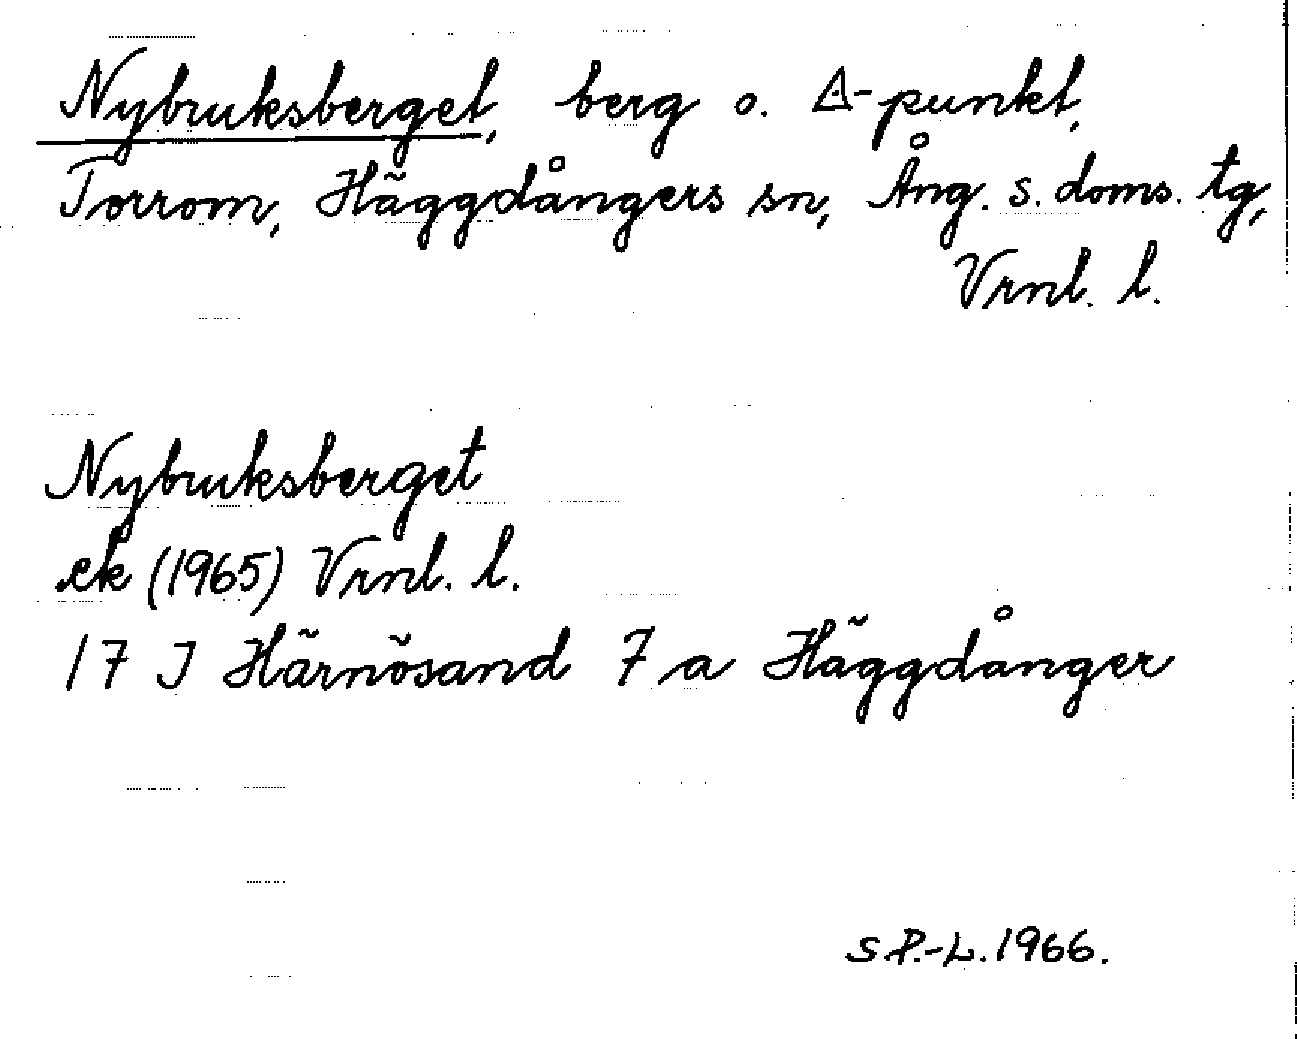 Nybruksberget, berg o. ∆-punkt,
Torrom, Häggdångers sn, Ång. s. doms. tg,
Vrnl. l.
Nybruksberget
ek (1965) Vrnl. l.
17 J Härnösand 7 a Häggdånger
S P.-L. 1966.